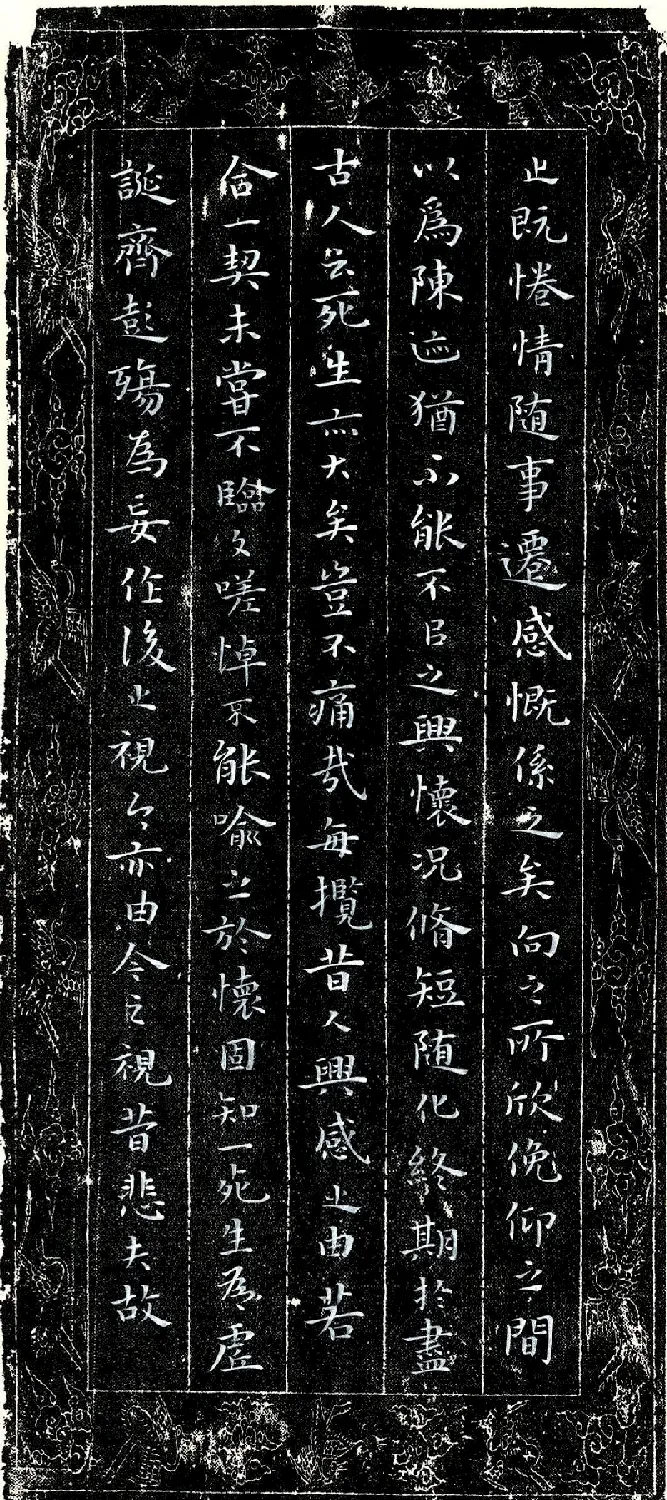 之既惓情随事遷感慨係之矣向之所欣俛仰之間
以爲陳迹猶不能不以之興懷况脩短随化終期於盡
古人云死生亦大矣豈不痛哉每攬昔人興感之由若
合一契未嘗不臨文嗟悼不能喻之於懷固知一死生爲虛
誕齊彭殤爲妄作後之視今亦由今之視昔悲夫故